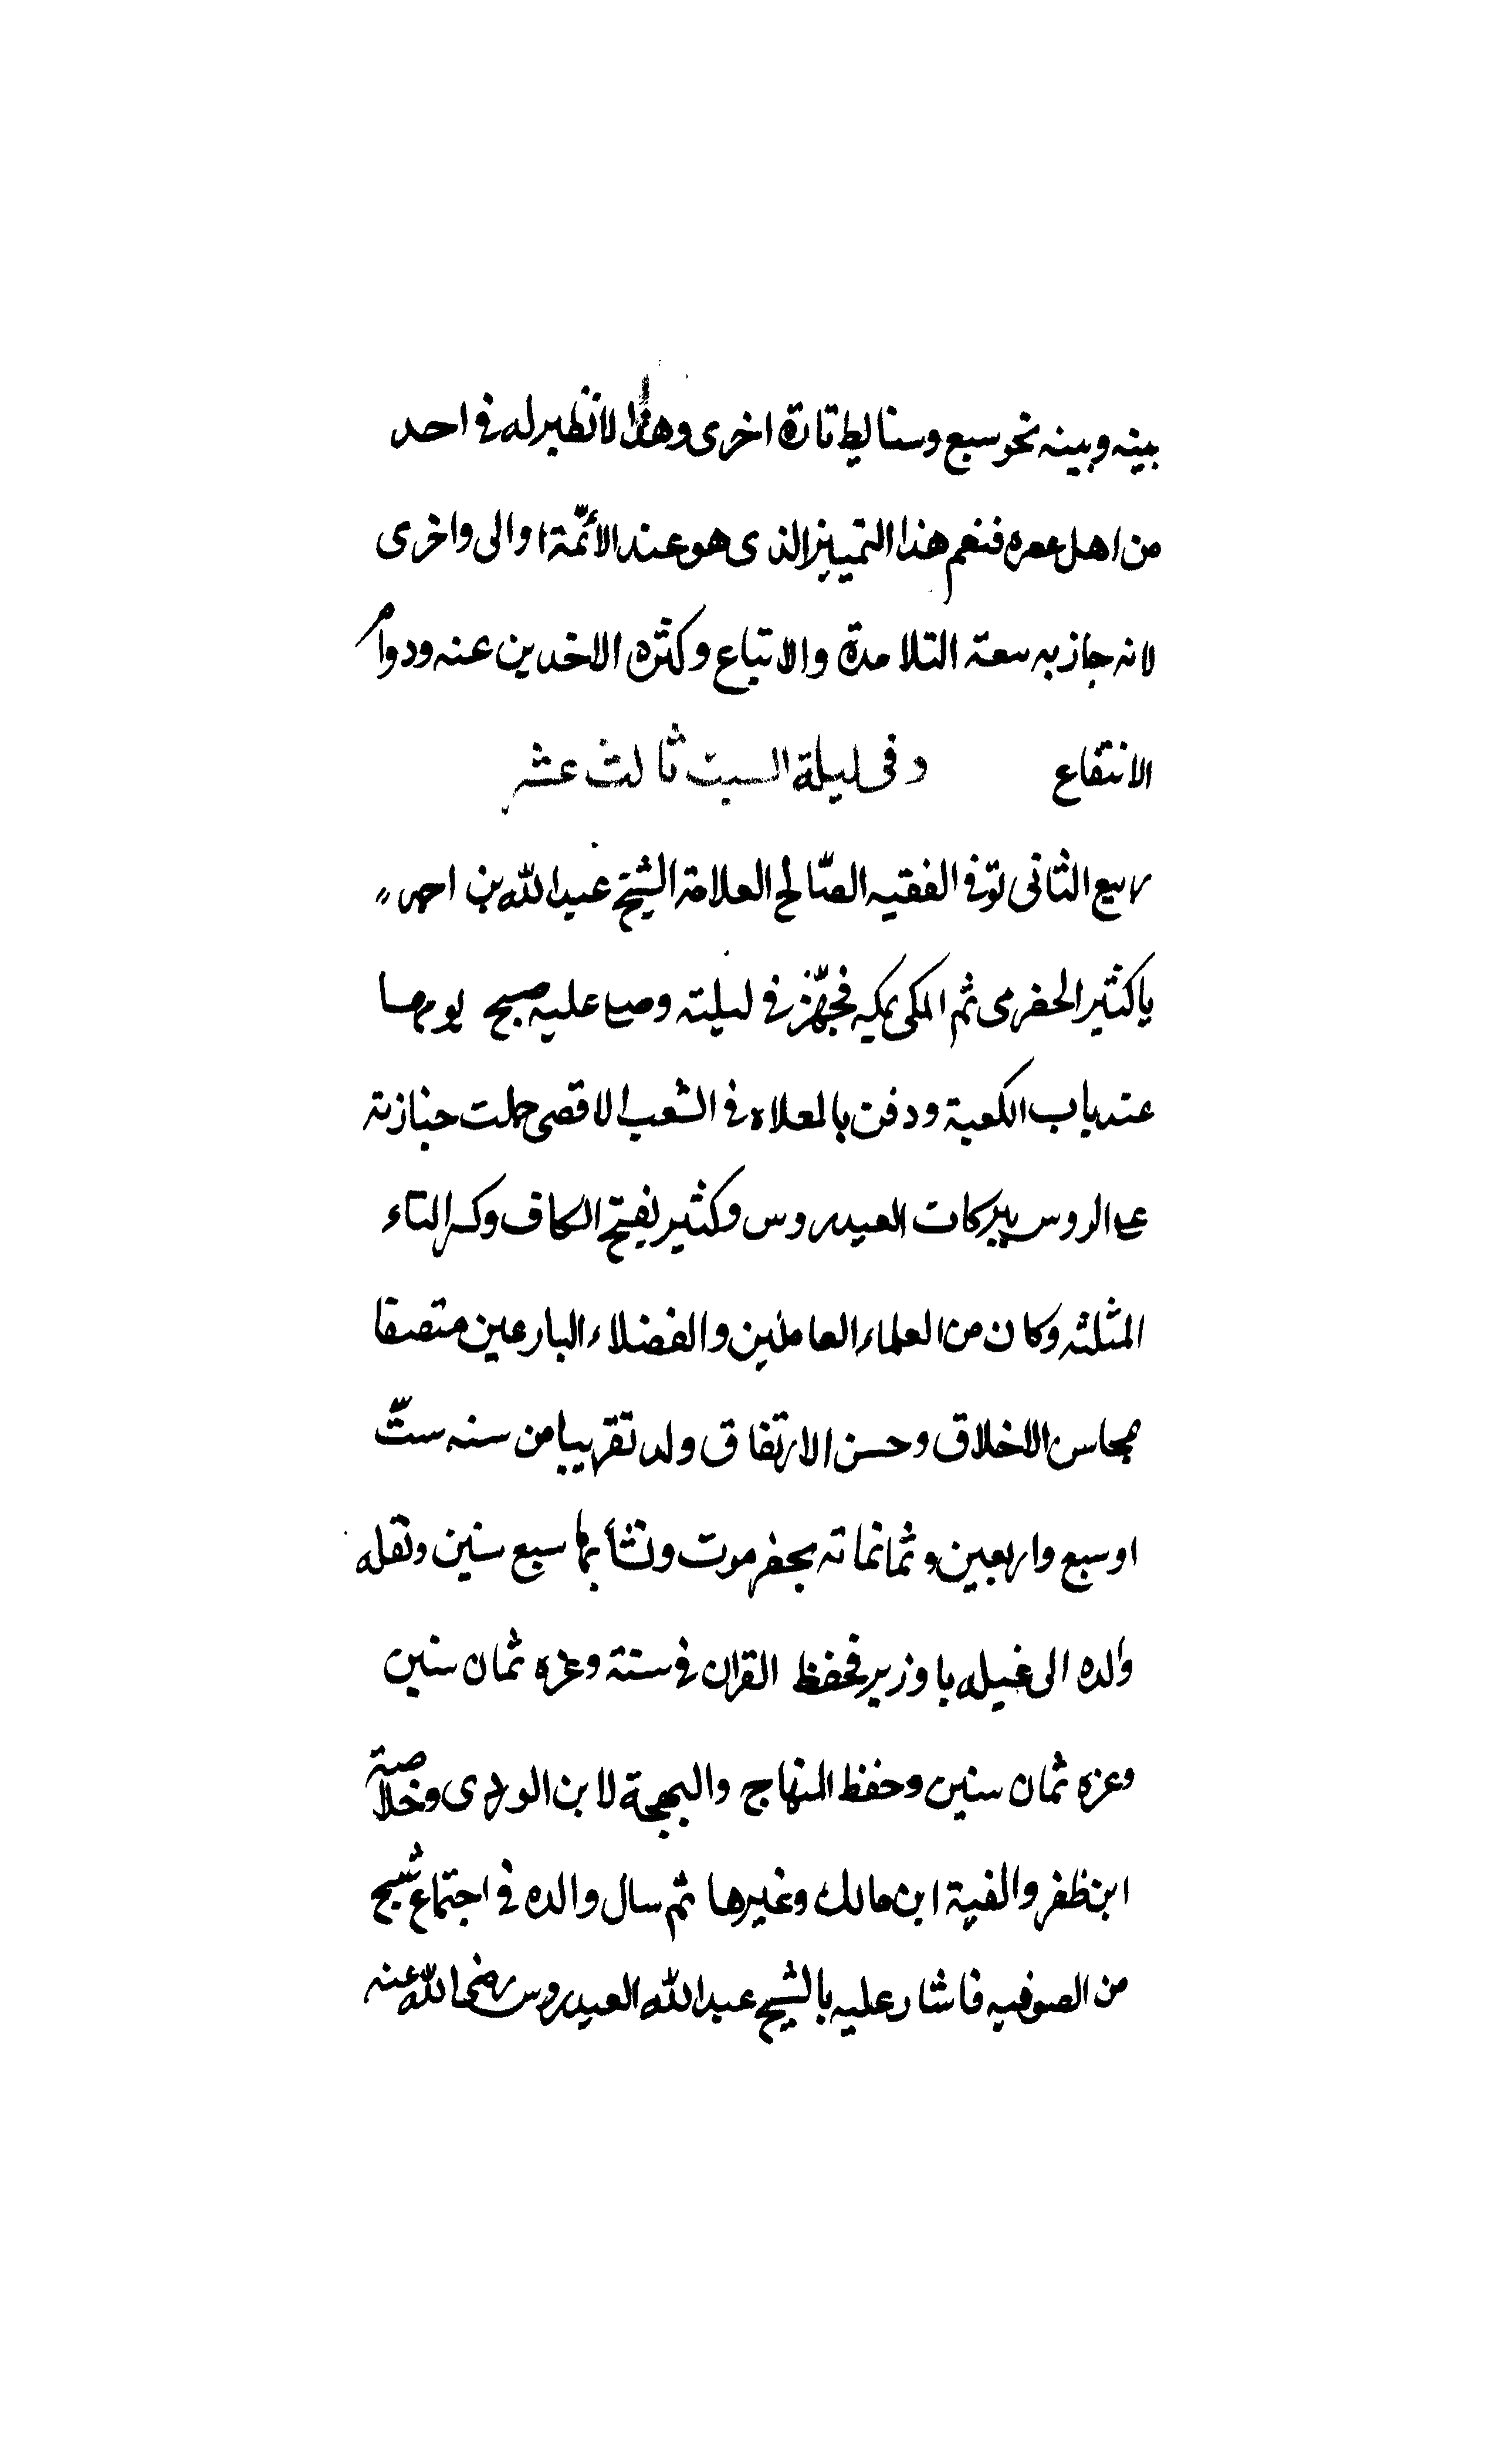 بينه وبينه نحو سبع وسنا ليط تارة اخرى وهذا لا نظير له في احد
من اهل عصره فنعم هذا التمييز الذى هو عند الأئمّة اوالى واخرى
لانه جاز به سعة التلا مدة والاتباع وكثره الاخدين عنه ودوام
الانتفاع وفى ليلة السبت ثالث عشر
ربيع الثانى توفى الفقيه الصّالح العلامة الشيخ عبد الله بن احمد
با كثير الحضرمى ثم المكى بمكه فجهّز في ليلته وصلى عليه صبح يومها
عند باب الكعبة ودفن بالمعلاه في الشعب الاقصى حملت جنازته
على الروس ببركات العيدروس وكثير بفتح الكاف وكسر التاء
المثلثه وكان من العلماء العاملين والفضلاء البارعين متصفا
بمحاسن الاخلاق وحسن الارتفاق ولد تقريبا من سنه ستّ
او سبع واربعين وثمانمائه بحضرموت ونشأ بها سبع سنين ونقله
والده الى غيل با وزير فحفظ القران في سنة وعمره ثمان سنين
وعمره ثمان سنين وحفظ المنهاج والبهجة لابن الوردى وخلاصة
ابن ظفر والفية ابن مالك وغيرها ثم سال والده في اجتماع شيخ
من الصوفيه فاشار عليه بالشيخ عبد الله العيدروس رضى الله عنه